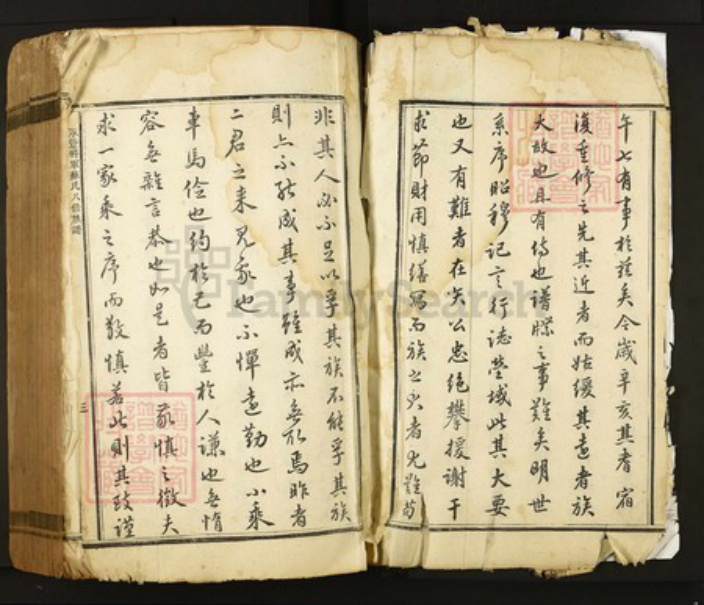 午七有事於茲矣今歲辛亥其耆宿
復重修之先其近者而姑緩其遠者族
大故也且有待也譜牒之事難矣明世
系序昭穆記言行誌塋域此其大要
也又有難者在矢公忠絕攀援謝干
求節財用慎繕寫而族之夫者尤難苟
非其人必不足以孚其族不能孚其族
則亦不能成其事雖成亦無取焉昨者
二君之來見我也不憚遠勤也不乘
車馬儉也約於己而豐於人謙也無惰
容無雜言恭也如是者皆敬慎之徵夫
求一家乘之序而敬慎若此則其致謹
氏八修族譜
三
FamilySearch